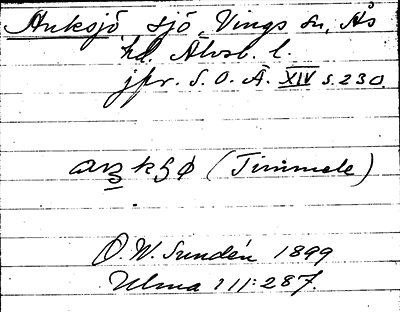 Anksjö, sjö, Vings sn, Ås
hd. Älvsb. l.
jfr. S. O. Ä. XIV s. 230.
(Timmele)
O. W. Sundén 1899
Ulma 111:287.